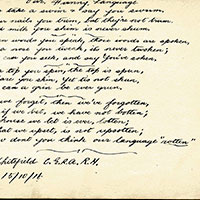 Funny Language
take a swim you say you swum
nails you trim, but they're not trum
milk you skim is never skum.
words you speak, those words are spoken,
a nose you tweak, it's never twoken;
you seek, and say you've
top you spin, the top is spun,
are you skin, yet 'tis not skun,
can a grin be ever grun.
we forget, then we've forgotten,
if we bet, we have not botten;
house we let is ever lotten;
hat we upset, is not upsotten;
dont you think our language "rotten"
15/10/16